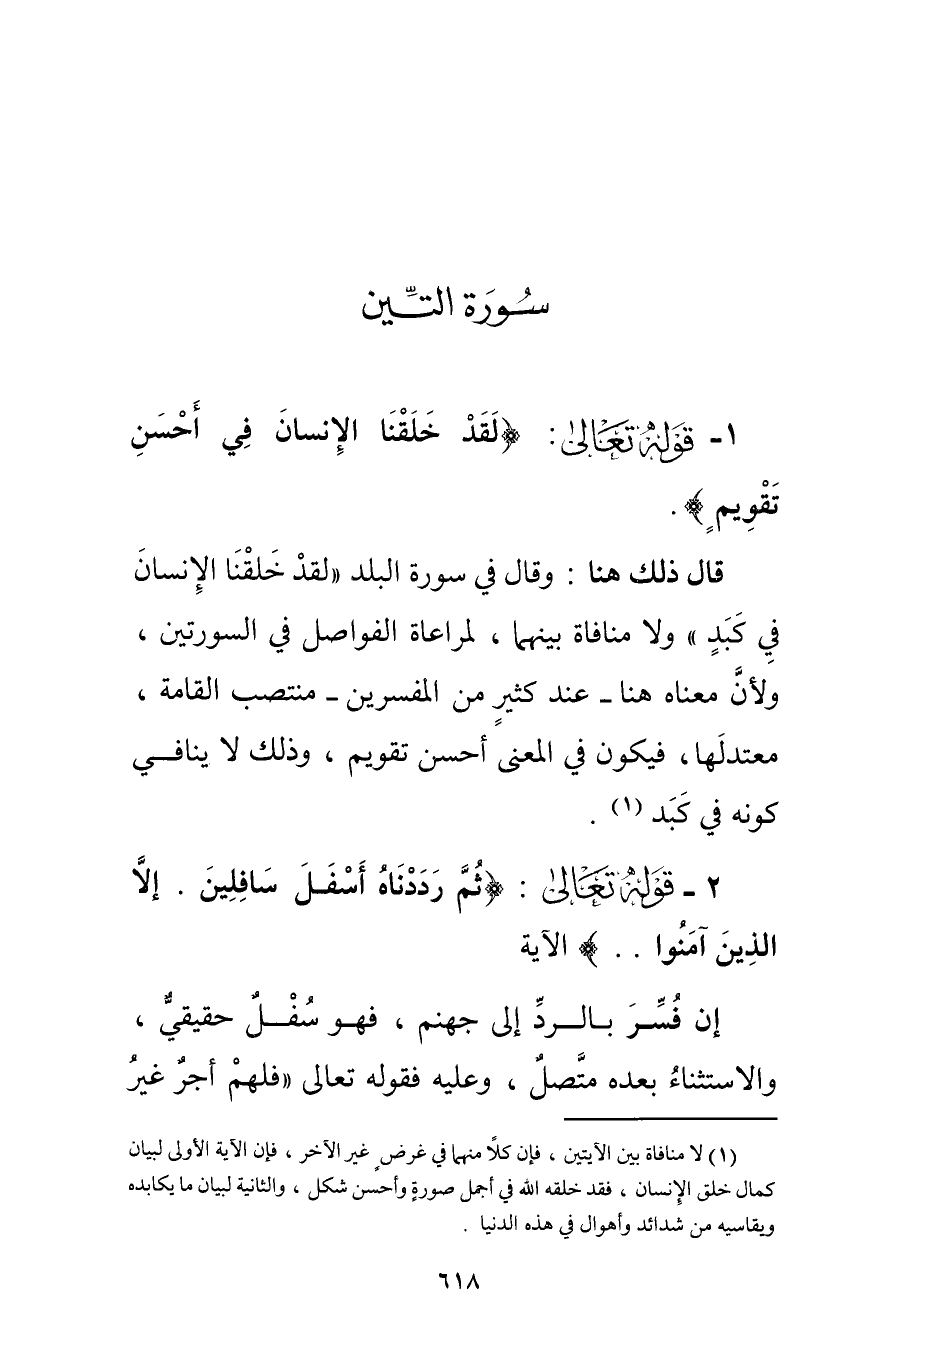 سُورَة التِّين
١- قَوْلُهُ تَعَالىٰ: ﴿لَقَدْ خَلَقْنَا الإِنسانَ فِي أَحْسَنِ
تَقْوِيمٍ﴾ .
قال ذلك هنا : وقال في سورة البلد «لقدْ خَلقْنَا الإِنسانَ
فِي كَبَدٍ» ولا منافاة بينهما ، لمراعاة الفواصل في السورتين ،
ولأنَّ معناه هنا ـ عند كثيرٍ من المفسرين ـ منتصب القامة ،
معتدلَها ، فيكون في المعنى أحسن تقويم ، وذلك لا ينافي
كونه في كَبَد (١) .
٢ ـ قَوْلُهُ تَعَالىٰ : ﴿ثُمَّ رَدَدْنَاهُ أَسْفَلَ سَافِلِينَ . إلَّا
الذِينَ آمَنُوا . . ﴾ الآية
إن فُسِّرَ بالردِّ إلى جهنم ، فهو سُفْلٌ حقيقيٌّ ،
والاستثناءُ بعده متَّصلٌ ، وعليه فقوله تعالى «فلهمْ أجرٌ غيرُ
(١) لا منافاة بين الآيتين ، فإن كلًّا منهما في غرضٍ غير الآخر ، فإن الآية الأولى لبيان
كمال خلق الإنسان ، فقد خلقه الله في أجمل صورةٍ وأحسن شكل ، والثانية لبيان ما يكابده
ويقاسيه من شدائد وأهوال في هذه الدنيا .
٦١٨